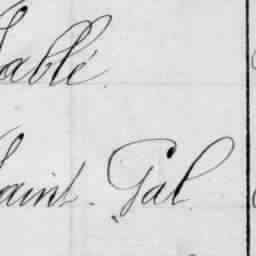 Sablé
Saint-Gal